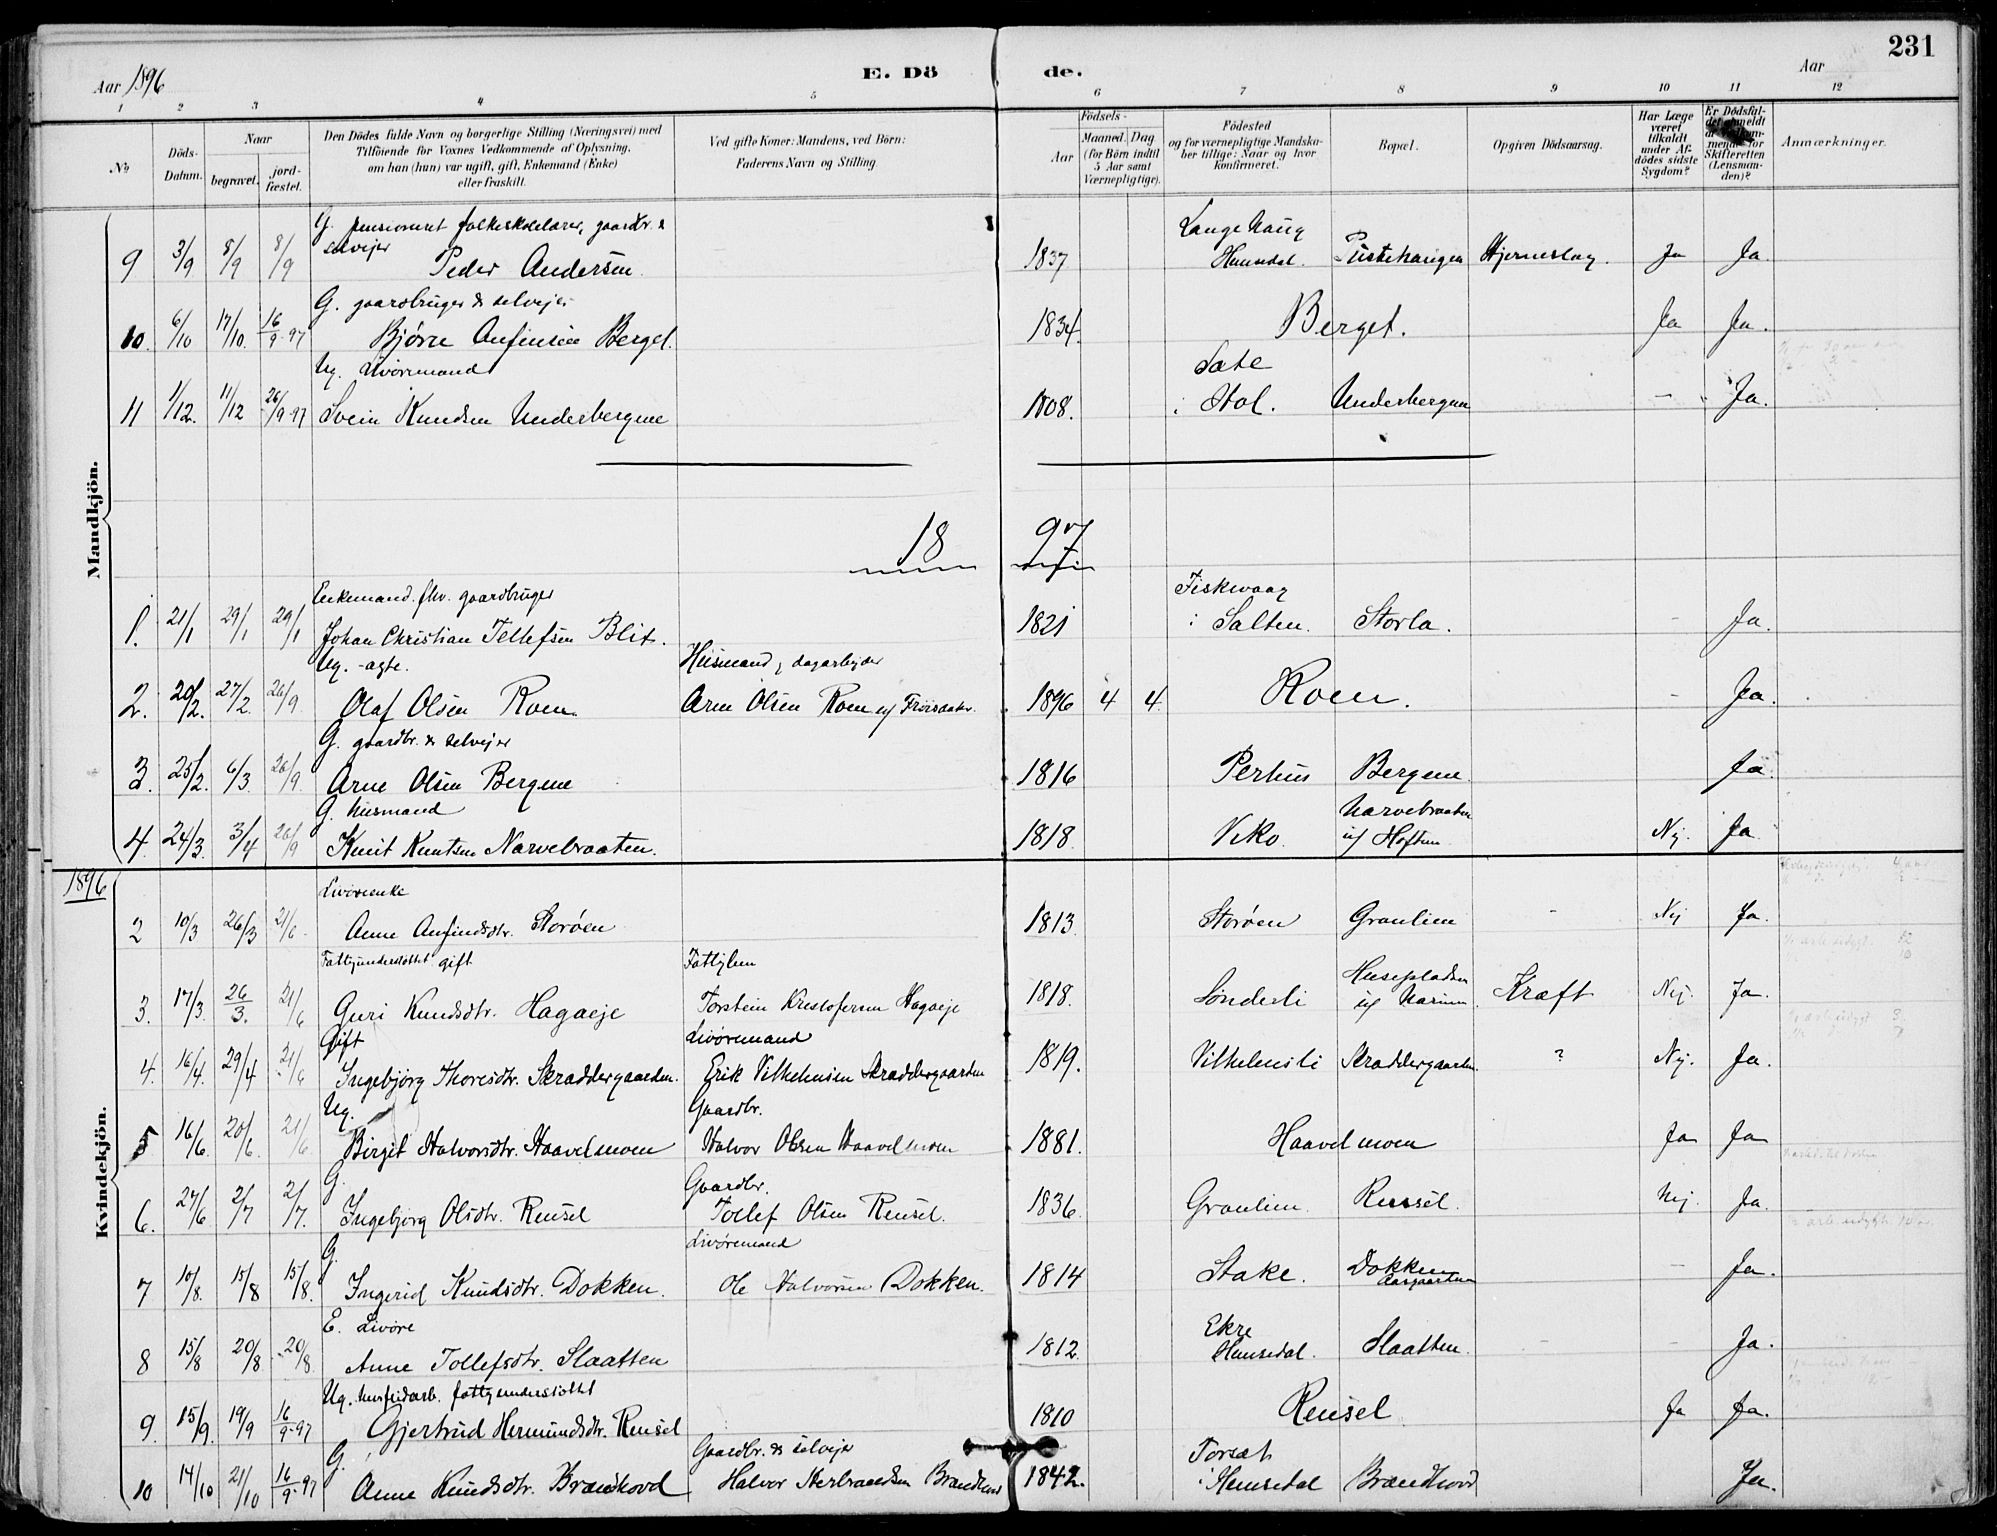 231
Aar 1896
E. Dö de.
Aar
1 2 3 4 5 6 7 8 9 10 11 12
№
Döds-Datum.
Naar
begravet.
jord-fæstet.
Den Dödes fulde Navn og borgerlige Stilling (Næringsvei) med
Tilföiende for Voxnes Vedkommende af Oplysning,
om han (hun) var ugift, gift, Enkemand (Enke)
eller fraskilt.
Ved gifte Koner: Mandens, ved Börn:
Faderens Navn og Stilling.
Födsels-
Aar
Maaned. Dag
(for Börn indtil
5 Aar samt
Værnepligtige).
Födested
og for værnepligtige Mandska-
ber tillige: Naar og hvor
konfirmeret.
Bopæl.
Opgiven Dödsaarsag.
Har Læge
været
tilkaldt
under Af-
dödes sidste
Sygdom?
Er Dödsfal-
Skifteretten
(Lensman-
den)?
Anmærkninger.
Mandkjön.
G. pensioneret folkeskolelærer, gaardbr. &
selvejer Langehaug
9 3/9 8/9 8/9 Peder Andersen. 1837 Hemsedal. Hjerneslag. Ja Ja.
G. gaardbruger & selvejer
10. 6/10 17/10. 16/9-97 Bjørn Anfinsen Berget. 1834. Berget. Ja Ja.
Ug. Livøremand
11 1/12. 11/12 26/9-97 Svein Knudsen Underbergene 1808. i Hol. Underbergene - Ja.
18 97
Enkemand. fhv. gaardbruger Fiskvaag
1. 21/1 29/1 29/1 Johan Christian Tellefsen Blix. 1821 i Salten. Storla. - Ja.
Ug. - ægte. Husmand, dagarbejder
2. 20/2. 27/2. 26/9 Olaf Olsen Roen. Arne Olsen Roen u/ Frøisaaker. 1896 4 4 Roen. - Ja.
G. gaardbr. & selvejer
3. 25/2. 6/3. 26/9. Arne Olsen Bergene 1816 Perhus Bergene. Ja.
G. husmand Narvebraaten
4. 24/3. 3/4 26/9 Knut Knutsen Narvebraaten. 1818. Viko. u/ Hoftun Nej. Ja
1896
Kvindekjön.
Livøreenke
2 10/3 26/3 21/6. Anne Anfindsdtr. Storøen 1813. Storøen Graulien - Nej Ja.
Fattigunderstøttet gift Fattiglem
3. 17/3. 26/3. 21/6 Guri Knudsdtr. Hagaeje Torstein Kristofersen Hagaeje 1818. Sønderli Kræft Nej. Ja.
Gift Livøremand
4. 16/4. 29/4 21/6 Ingebjørg Thoresdtr. Skræddergaarden. Erik Vilhelmsen Skræddergaarden 1819. Vilhelmsli Skræddergaarden. ? Nej. Ja.
Ug. Gaardbr.
5 16/6. 20/6. 21/6. Birgit Halvorsdtr. Haavelmoen Halvor Olsen Haavelmoen 1881. Haavelmoen Ja Ja
G. Gaardbr.
6. 27/6 2/7 2/7. Ingebjørg Olsdtr. Reusel Tollef Olsen Reusel. 1836. Graulien. Reusel. Nej. Ja.
G. Livøremand
7 10/8. 15/8 15/8. Ingerid Knudsdtr. Dokken. Ole Halvorsen Dokken. 1814 Stake. Dokken - Ja.
E. Livøre Ekre
8 15/8 20/8 20/8. Anne Tollefsdtr. Slaatten 1812. Hemsedal. Slaatten. - - Ja.
Ug. fattigunderstøttet
9. 15/9. 19/9 16/9-97 Gjertrud Hermundsdtr. Reusel 1810 Reusel Ja Ja.
G. Gaardbr. & selvejer Torset
10 14/10 21/10 16/9-97 Anne Knudsdtr. Brandhovd Halvor Herbrandsen Brandhovd 1842. i Hemsedal Brandhovd Ja.